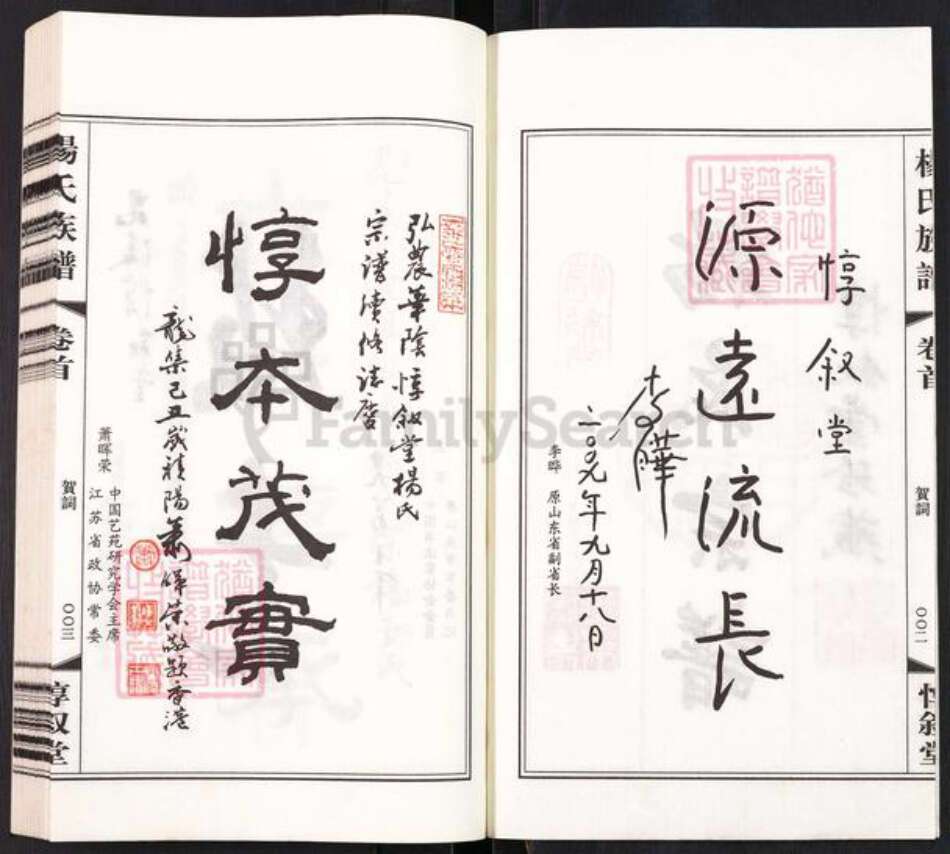 楊氏族譜
卷首
賀詞
〇〇二
惇叙堂
惇叙堂
源遠流長
李曄
二〇〇九年九月十八日
李晔 原山东省副省长
弘農華陰惇叙堂楊氏
宗譜續修誌慶
惇本茂實
龍集己丑歲祥陽蕭暉榮敬題香港
萧晖荣 中国艺苑研究学会主席
江苏省政协常委
楊氏族譜
卷首
賀詞
〇〇三
惇叙堂
FamilySearch